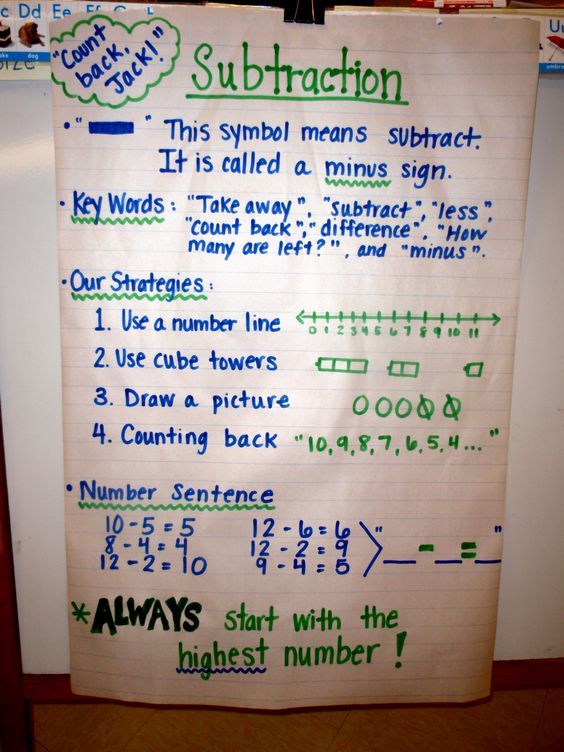 c Dd Ee Ff G
dog
Uu
umbre
ize
"Count
back,
Jack!"
Subtraction
• "▬" This symbol means subtract.
It is called a minus sign.
• Key Words: "Take away", "subtract", "less",
"count back", "difference", "How
many are left?", and "minus".
• Our Strategies:
1. Use a number line
0 1 2 3 4 5 6 7 8 9 10 11
2. Use cube towers
3. Draw a picture
4. Counting back "10, 9, 8, 7, 6, 5, 4..."
• Number Sentence
10 - 5 = 5 12 - 6 = 6
8 - 4 = 4 12 - 2 = 9 "__ - __ = __"
12 - 2 = 10 9 - 4 = 5
*ALWAYS start with the
highest number!